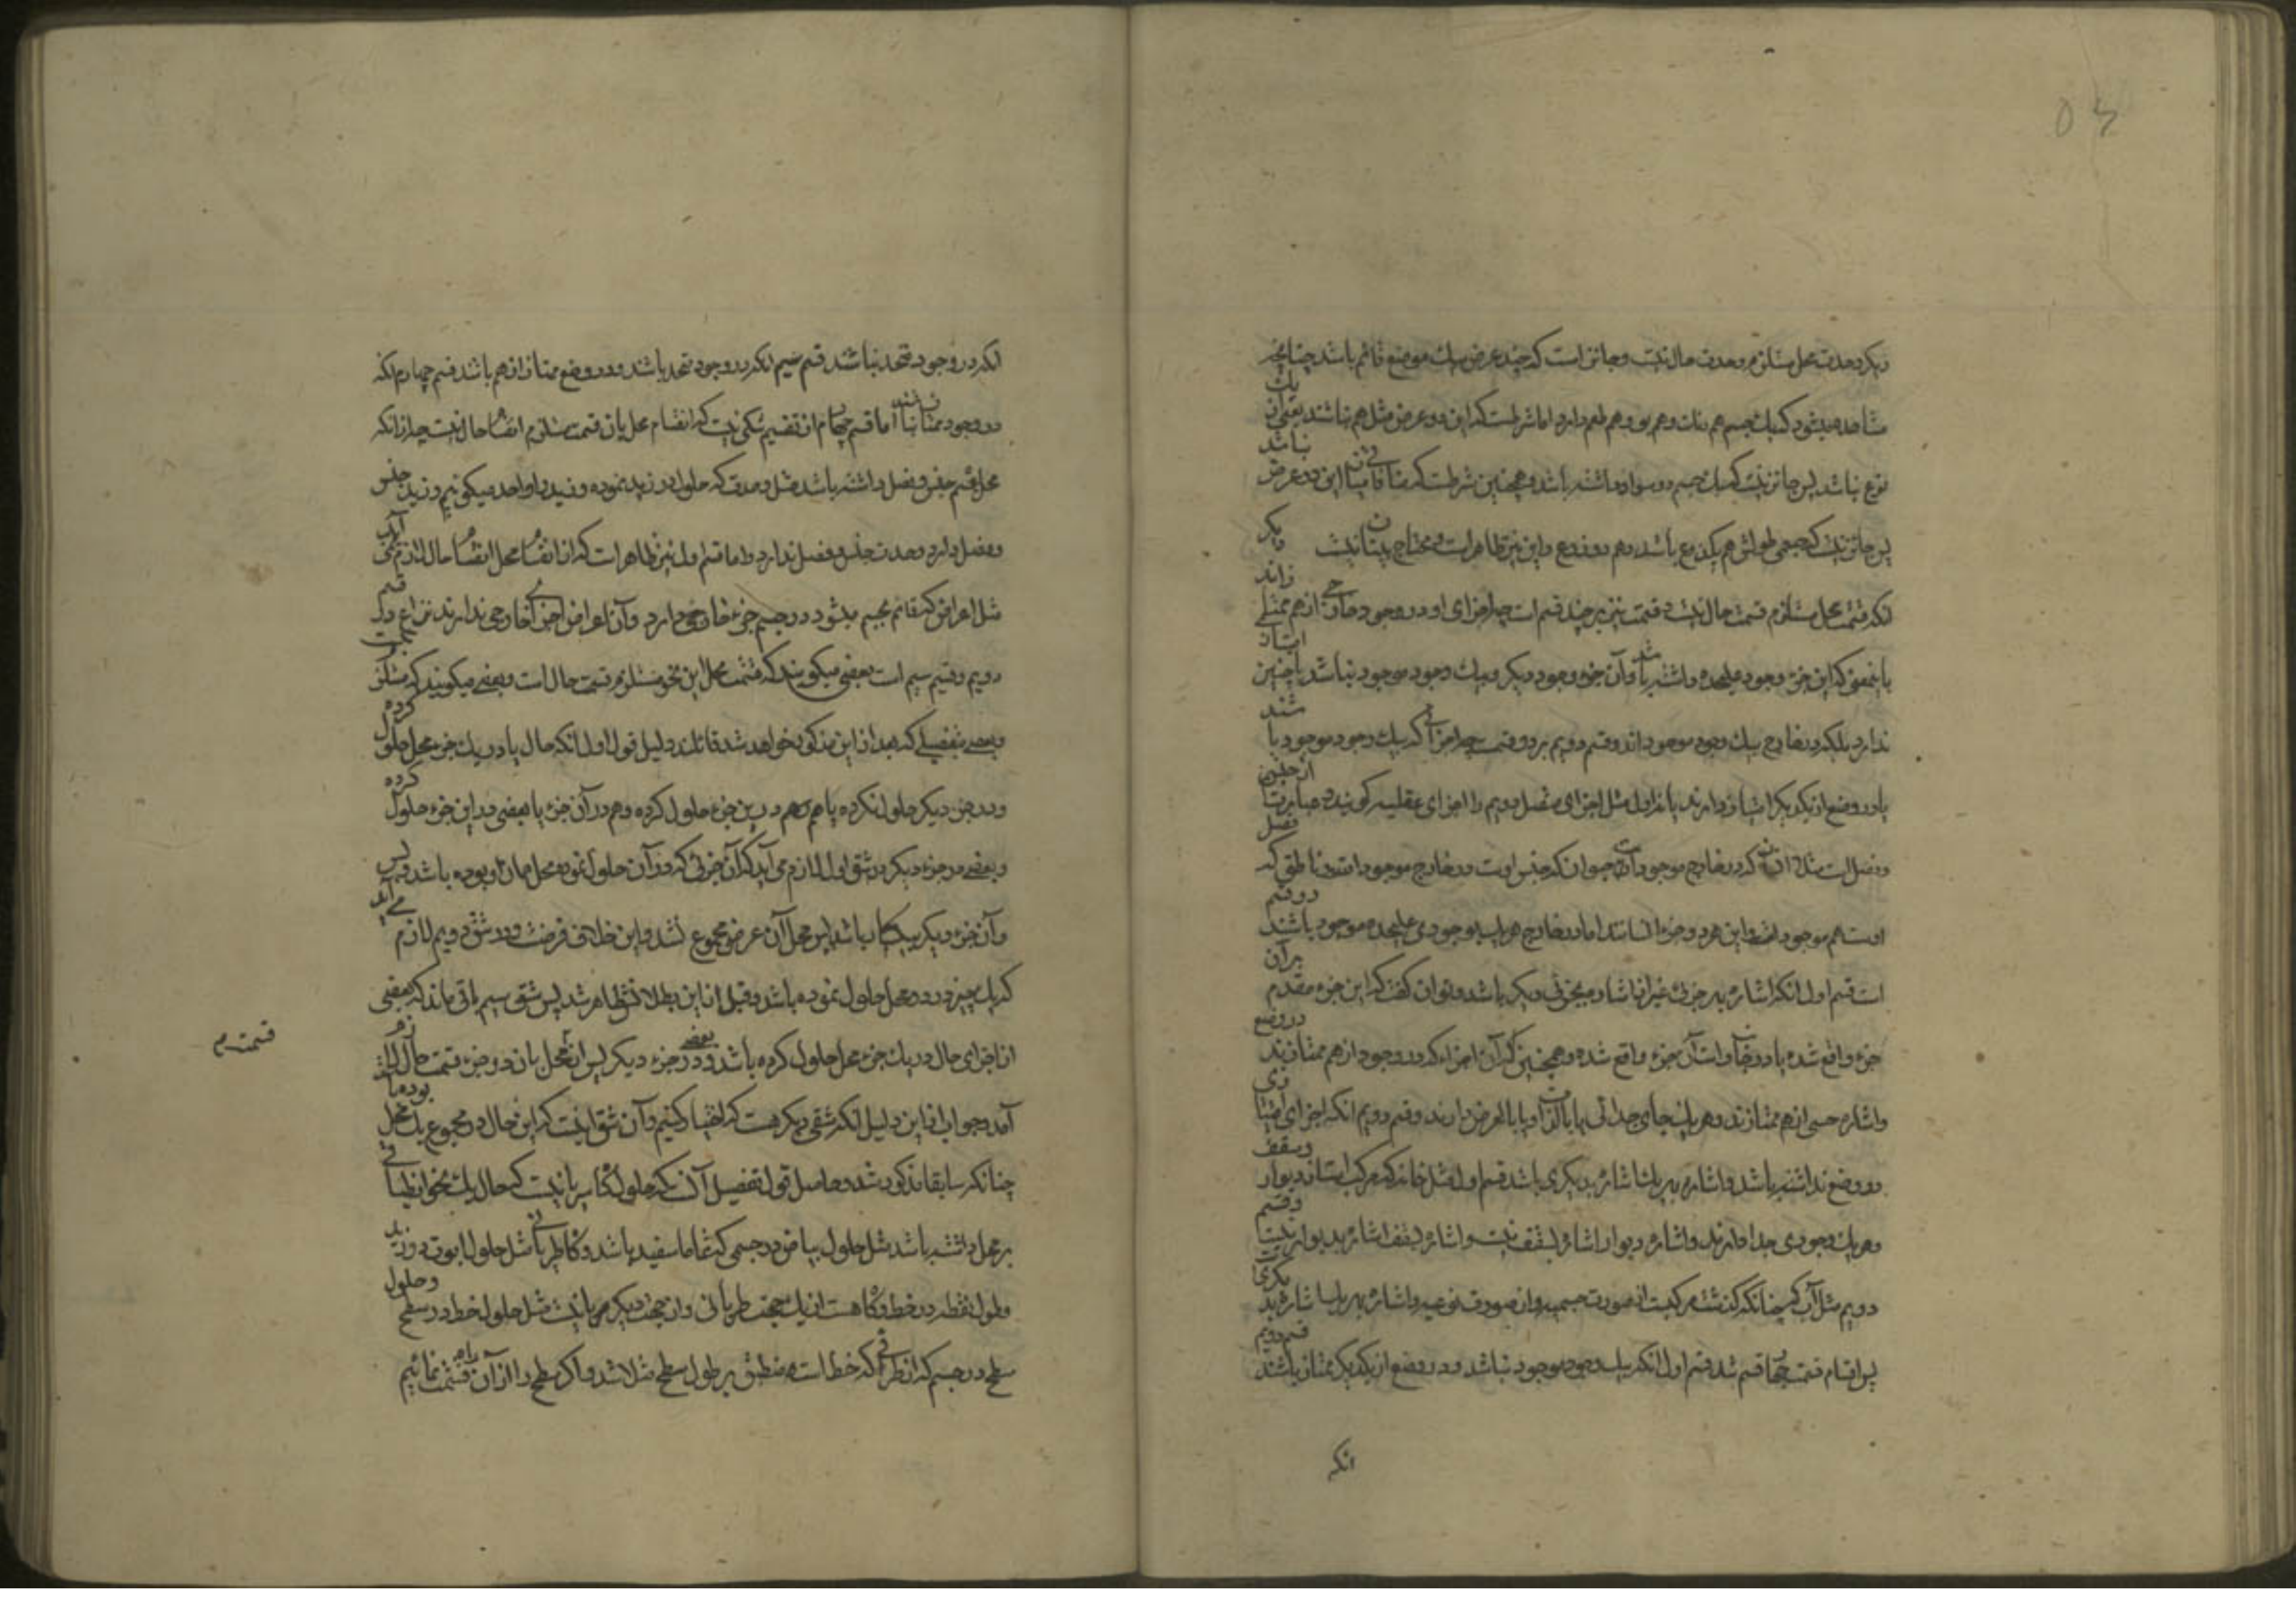 دیگر وحدت محل مستلزم وحدت حال نیست و جائز است که چند عرض بیک موضع قائم باشد چنانچه
مشاهده میشود که یک جسم هم رنگ و هم بو و هم طعم دارد اما شرطست که این دو عرض مثل هم نباشند یعنی از یک
نوع نباشد پس جائز نیست که یک جسم دو سواد داشته باشد و همچنین شرطست که منافاتی میان این دو عرض نباشد
پس جائز نیست که جسمی طولش هم یکذرع باشد و هم دو ذرع و این نیز ظاهر است و محتاج به بیان نیست دیگر
انکه قسمت محل مستلزم قسمت حال نیست و قسمت نیز بر چند قسم است چه اجزای او در وجود خارجی از هم ممتازند
باینمعنی که این جزء وجود علیحده داشته باشد و آن جزء وجود دیگر و بیک وجود موجود نباشد یا چنین امتیاز
ندارد بلکه در خارج بیک وجود موجود اند و قسم دویم بر دو قسمت چه اجزائی که بیک وجود موجود باشند
یا در وضع از یکدیگر امتیاز دارند یا نه اول مثل اجزای متصل دویم را اجزای عقلیه گویند و عبارت از جنس
و فصل است مثلا انسان که در خارج موجود است حیوان که جنس اوست در خارج موجود است و ناطق که فصل
اوست هم موجود است و این هر دو جزء انسانند اما در خارج هر یک بوجودی علیحده موجود باشند دو قسم
است قسم اول انکه اشاره بهر جزئی غیر از اشاره بجزئی دیگر باشد و توان گفت که این جزء مقدم بر آن
جزء واقع شده یا در جانب راست آن جزء واقع شده و همچنین که آن اجزاء که در وجود از هم ممتازند در وضع
و اشاره حسی از هم ممتازند و هر یک جای جدائی یا بالذات و یا بالعرض دارند و قسم دویم انکه اجزای امتیازی
در وضع نداشته باشد و اشاره بهر یک اشاره بدیگری باشد قسم اول مثل خانه که مرکب است از دیوار و سقف
و هر یک وجودی جدا دارند و اشاره دیوار اشاره بسقف نیست و اشاره بسقف اشاره بدیوار نیست و قسم
دویم مثل آب که چنانکه گذشت مرکبست از صورت جسمیه و از صورت نوعیه و اشاره بهر یک اشاره بدیگریست
پس اقسام قسمت چهار قسم شد قسم اول انکه بیک وجود موجود نباشد و در وضع از یکدیگر ممتاز باشند قسم دویم
انکه
انکه در وجود متحد نباشد قسم سیم انکه در وجود متحد باشند و در وضع ممتاز از هم باشد قسم چهارم انکه
در وجود ممتاز نباشند اما قسم چهارم از تقسیم شکی نیست که انقسام محل باین قسمت مستلزم انقسام حال نیست چه از انکه
محل قسم جنس و فصل داشته باشد مثل وحدت که حلول در زید نموده و زید را واحد میگوئیم و زید جنس
و فصل دارد وحدت جنس و فصل ندارد و اما قسم اول نیز ظاهر است که از انقسام محل انقسام حال لازم نمی آید
مثل اعراض که قائم بجسم میشود در جسم جزء خارجی دارد و آن اعراض اجزای خارجی ندارند نزاع در قسم
دویم و قسیم سیم است بعضی میگویند که قسمت محل این نحو مستلزم قسمت حال است و بعضی میگویند که مستلزم نیست
و بعضی بتفصیلی که بعد از این مذکور خواهد شد قائلند دلیل قول اول انکه حال یا در یک جزء محل حلول کرده
و در جزء دیگر حلول نکرده یا هم در این جزء حلول کرده و هم در آن جزء یا بعضی در این جزء حلول کرده
و بعضی در جزء دیگر در شق اول لازم می آید که آن جزئی که در آن حلول نموده محل همان او بوده باشد و بس
و آن جزء دیگر بیگانه باشد پس محل آن عرض مجموع نشد و این خلاف فرضست و در شق دویم لازم می آید
که یک چیز در دو محل حلول نموده باشد و قبل از این بطلانش ظاهر شد پس شق سیم باقی ماند که بعضی
از اجزای حال در یک جزء محل حلول کرده باشد و بعضی در جزء دیگر پس از انقسام محل بان دو جزء قسمت حال لازم
قسمت م
آمد و جواب از این دلیل انکه شقی دیگر هست که اختیار کنیم و آن شق اینست که این حال در مجموع یک محل بوده باشد
چنانکه سابقا مذکور شد و حاصل قول تفصیل آنست که حلول گاه سریانیست که حال یک نحو انطباقی
بر محل داشته باشد مثل حلول بیاض در جسمی که تماما سفید باشد و گاه طریانی مثل حلول ابوت در زید
و حلول نقطه در خط و گاه هست از یک جهت طریانی و از جهت دیگر سریانیست مثل حلول خط در سطح و حلول
سطح در جسم که از طرفی که خط است منطبق بر طول سطح مثلا شد و اگر سطح را از آن راه قسمت نمائیم